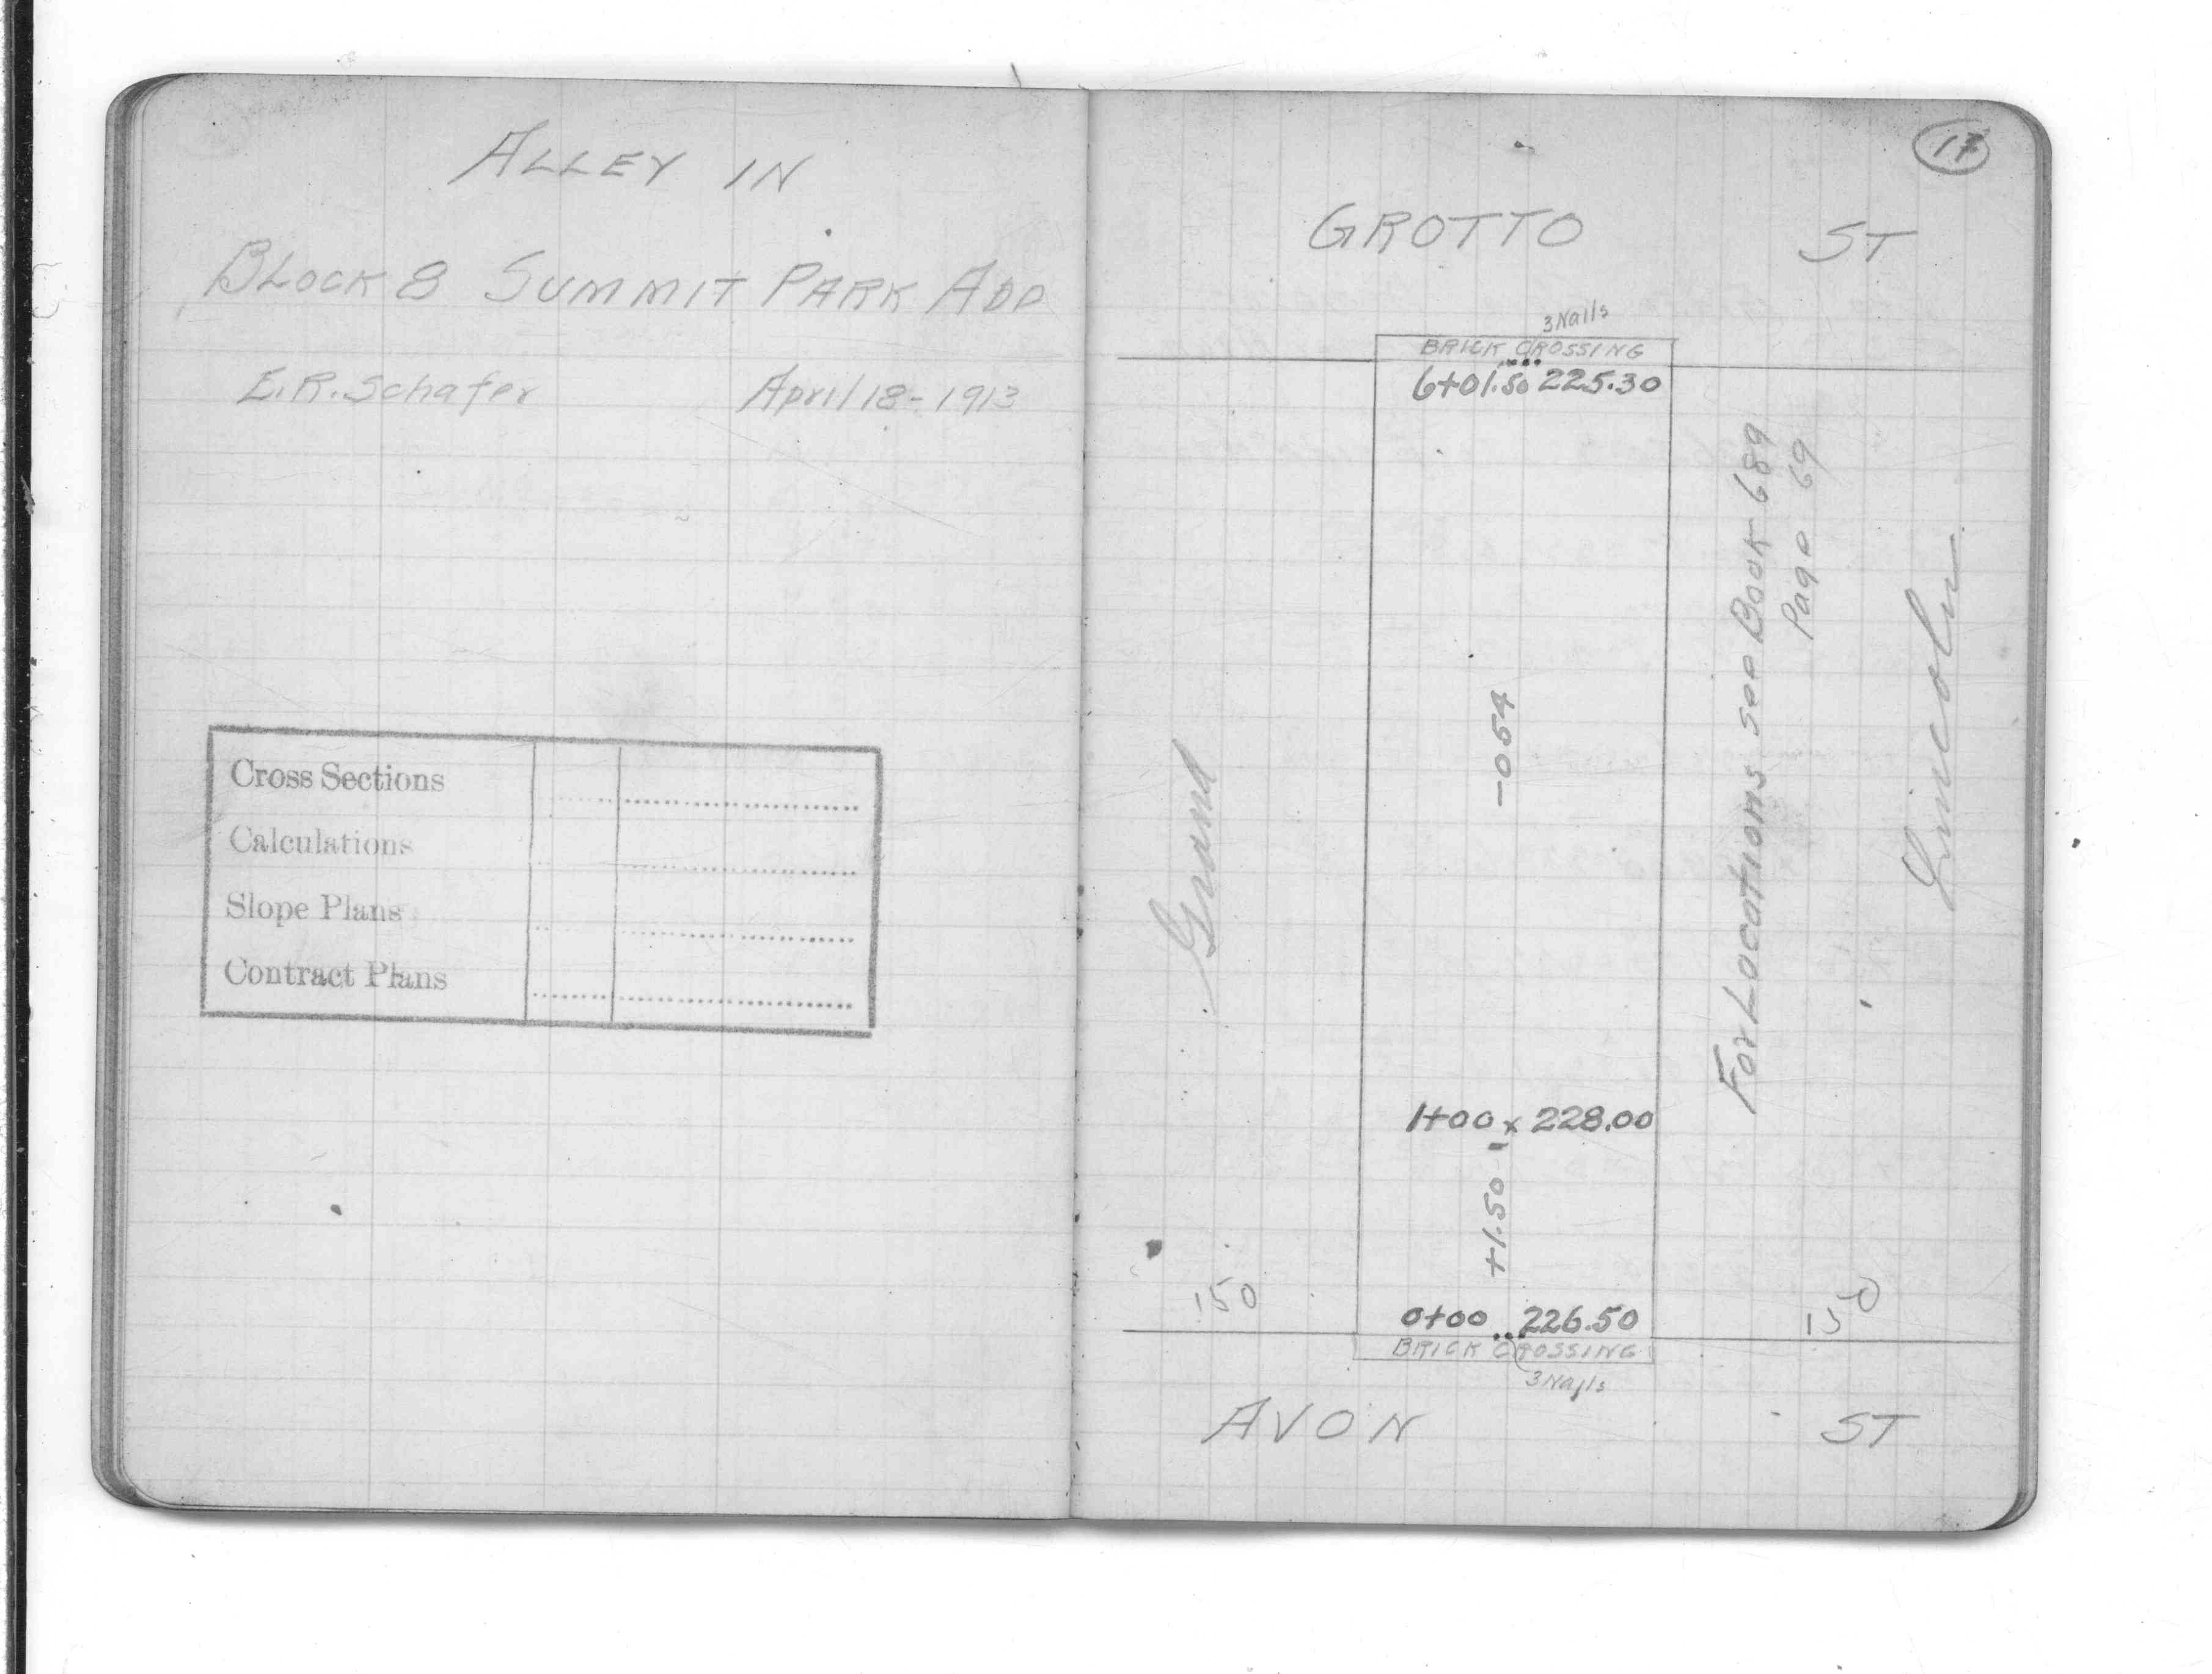 ALLEY IN
BLOCK 8 SUMMIT PARK ADD
E.R. Schafer April 18-1913
Cross Sections
Calculations
Slope Plans
Contract Plans
17
GROTTO ST
3 Nails
BRICK CROSSING
6+01.50 225.30
-054
For Locations see Book 689
Page 69
Grand
Lincoln
1+00 x 228.00
+1.50
150
150
0+00 226.50
BRICK CROSSING
3 Nails
AVON ST